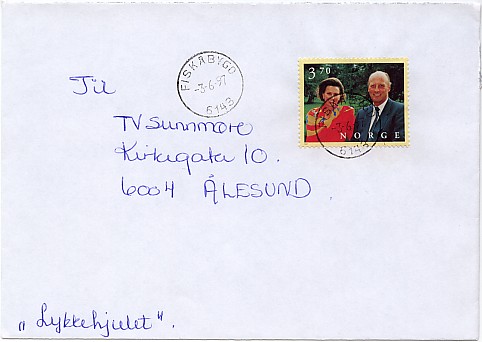 FISKÅBYGD
-3-6-97
6143
3.70
NORGE
-3-6
6143
Til
TV Sunnmøre
Kirkegata 10.
6004 ÅLESUND.
"Lykkehjulet".